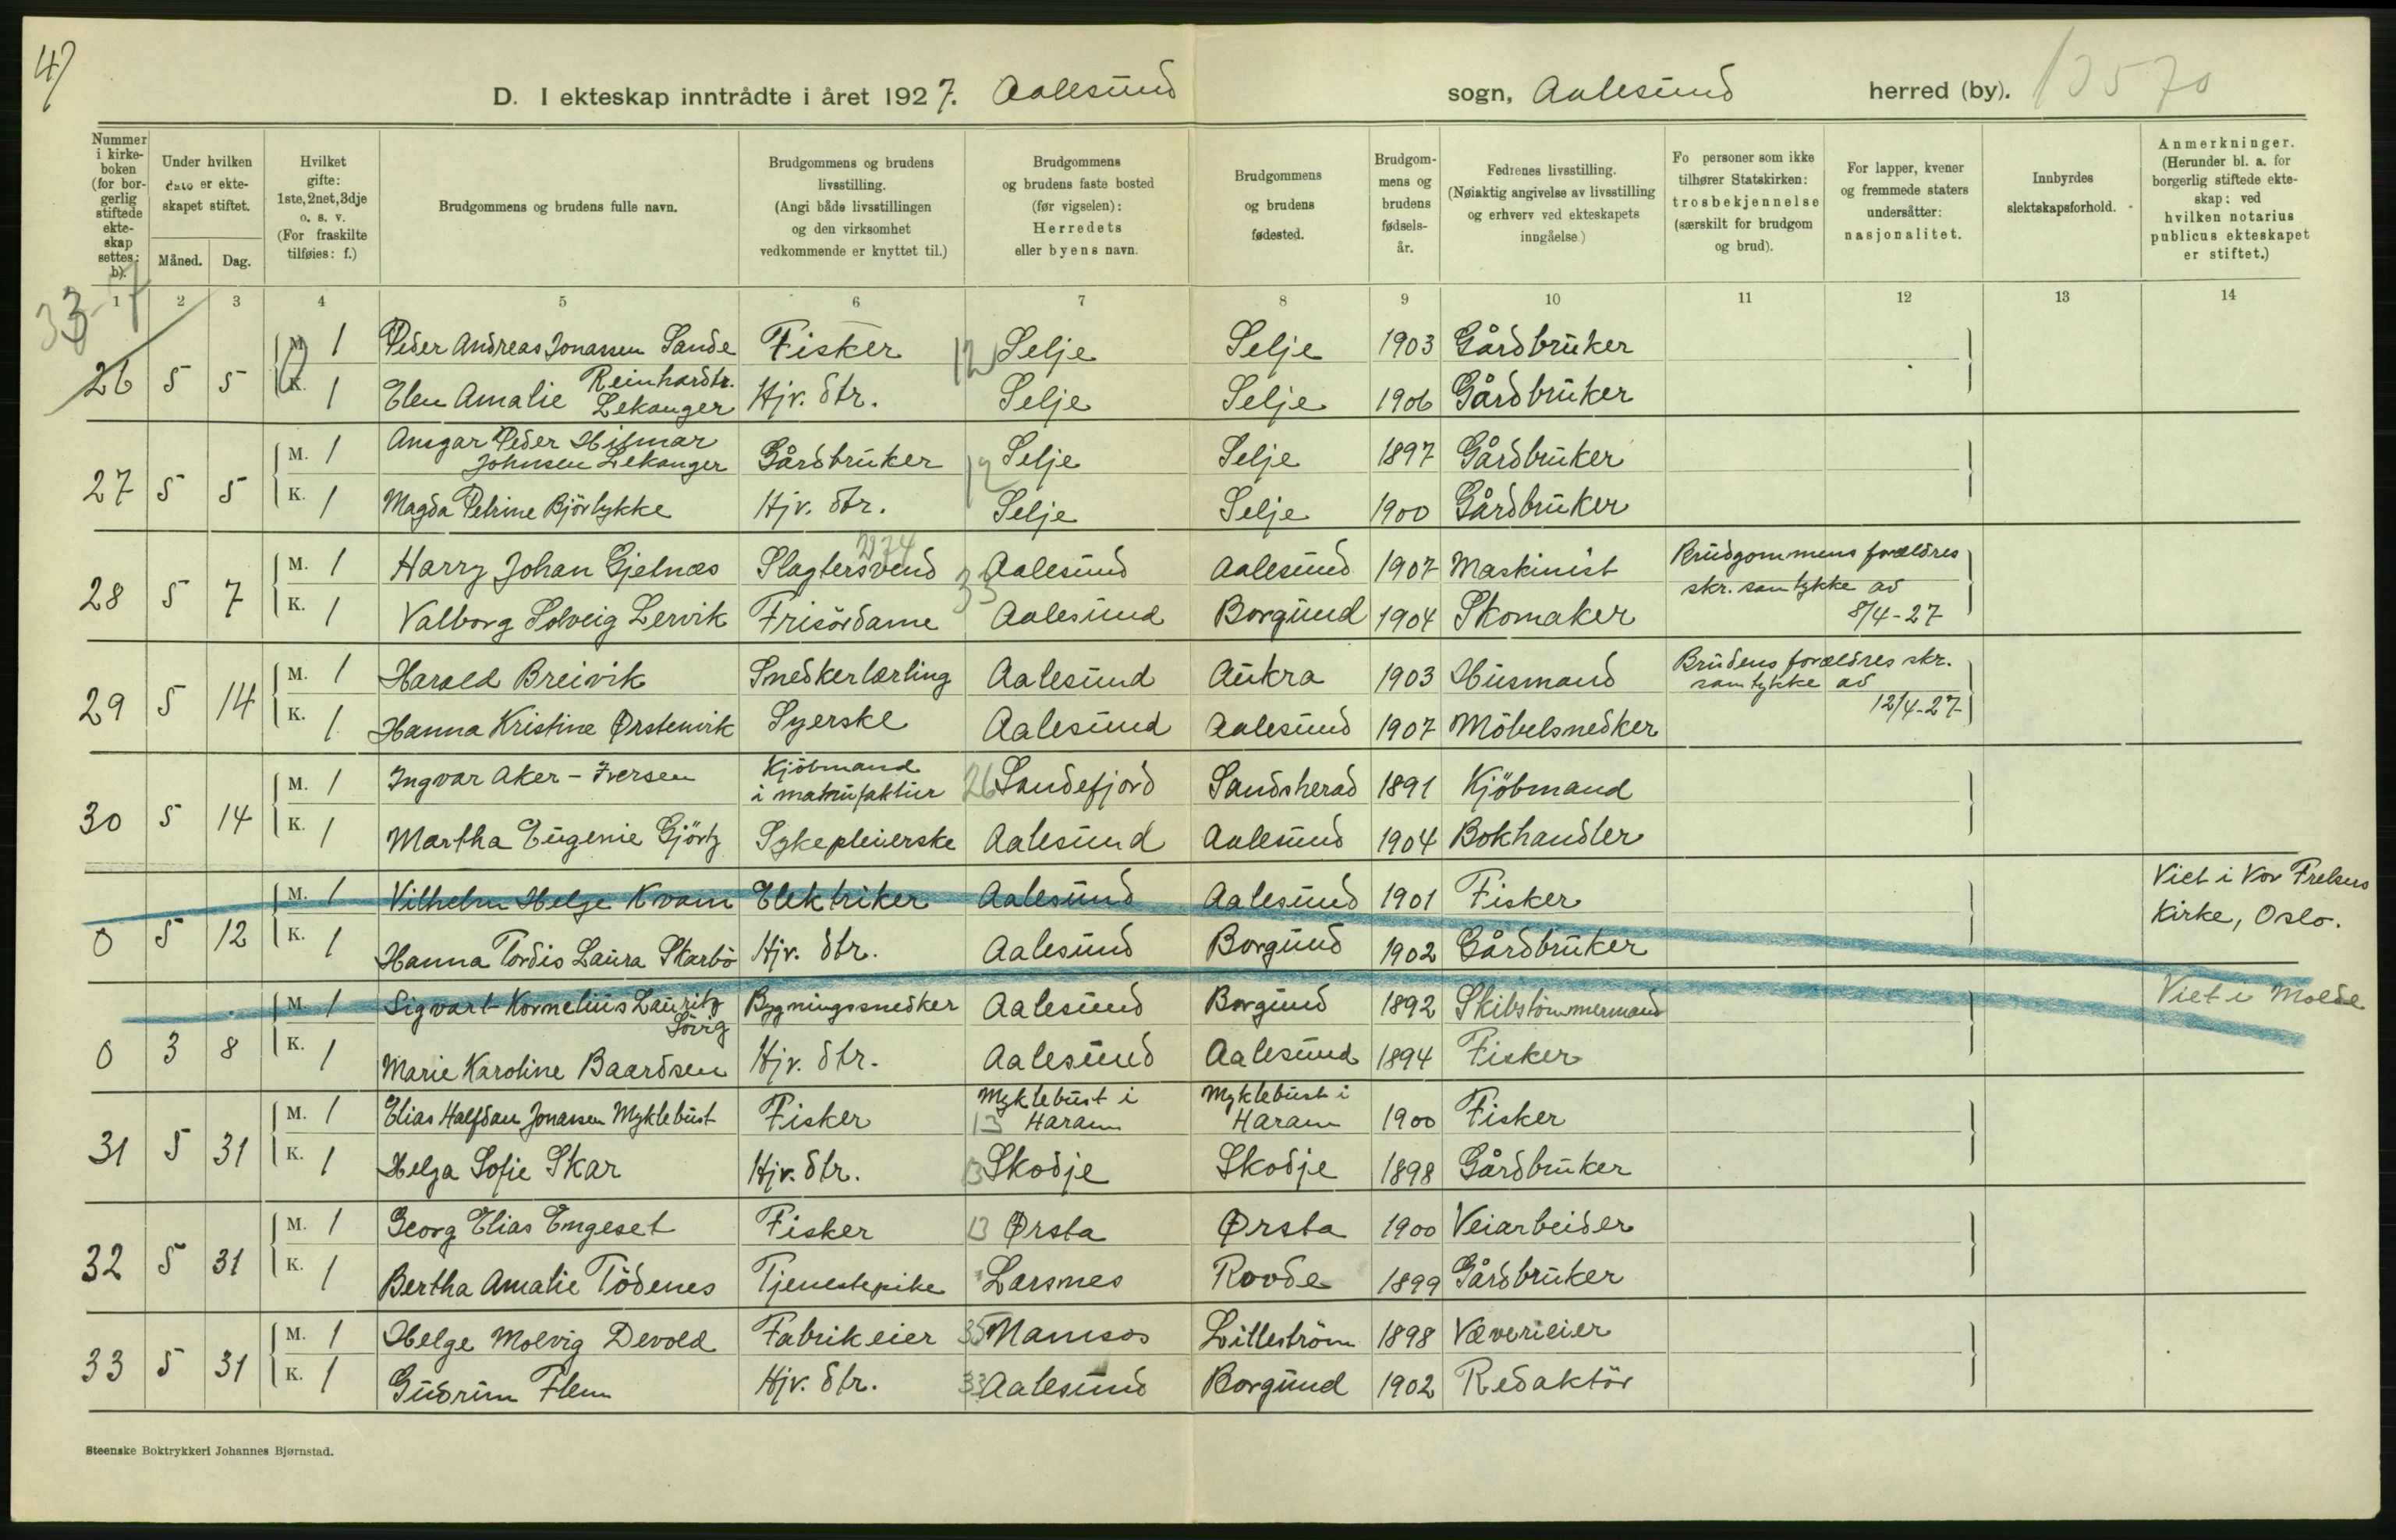 4)
D. I ekteskap inntrådte i året 1927. Aalesund sogn, Aalesund herred (by). 13570
Nummer i kirkeboken (for borgerlig stiftede ekteskap settes: b).
Under hvilken dato er ekteskapet stiftet.
Måned. Dag.
Hvilket gifte: 1ste, 2net, 3dje o. s. v. (For fraskilte tilføies: f.)
Brudgommens og brudens fulle navn.
Brudgommens og brudens livsstilling. (Angi både livsstillingen og den virksomhet vedkommende er knyttet til.)
Brudgommens og brudens faste bosted (før vigselen): Herredets eller byens navn.
Brudgommens og brudens fødested.
Brudgommens og brudens fødselsår.
Fedrenes livsstilling. (Nøiaktig angivelse av livsstilling og erhverv ved ekteskapets inngåelse)
Fo personer som ikke tilhører Statskirken: trosbekjennelse (særskilt for brudgom og brud).
For lapper, kvener og fremmede staters undersåtter: nasjonalitet.
Innbyrdes slektskapsforhold.
Anmerkninger. (Herunder bl. a. for borgerlig stiftede ekteskap: ved hvilken notarius publicus ekteskapet er stiftet.)
1 2 3 4 5 6 7 8 9 10 11 12 13 14
26 5 5 M. 1 Peder Andreas Jonassen Sande Fisker 12 Selje Selje 1903 Gårdbruker
K. 1 Elen Amalie Reinhardtr. Lekanger Hjv. dtr. Selje Selje 1906 Gårdbruker
27 5 5 M. 1 Ansgar Peder Hilmar Johnsen Lekanger Gårdbruker 12 Selje Selje 1897 Gårdbruker
K. 1 Magda Petrine Bjørlykke Hjv. dtr. Selje Selje 1900 Gårdbruker
28 5 7 M. 1 Harry Johan Gjelnæs Slagtersvend 33 Aalesund Aalesund 1907 Maskinist Brudgommens forældres
K. 1 Valborg Solveig Lervik Frisördame Aalesund Borgund 1904 Skomaker skr. samtykke av 8/4-27
29 5 14 M. 1 Harald Breivik Snedkerlærling Aalesund Aukra 1903 Husmand Brudens forældres skr. samtykke av
K. 1 Hanna Kristine Ørstenvik Syerske Aalesund Aalesund 1907 Möbelsnedker 12/4-27
30 5 14 M. 1 Ingvar Aker-Iversen Kjöbmand i manufaktur 26 Sandefjord Sandsherad 1891 Kjöbmand
K. 1 Martha Eugenie Gjörtz Sykepleierske Aalesund Aalesund 1904 Bokhandler
0 5 12 M. 1 Vilhelm Helge Kvam Elektriker Aalesund Aalesund 1901 Fisker Viet i Vor Frelsers
K. 1 Hanna Tordis Laura Skarbö Hjv. dtr. Aalesund Borgund 1902 Gårdbruker Kirke, Oslo.
0 3 8 M. 1 Sigvart Kornelius Lauritz Sövig Bygningssnedker Aalesund Borgund 1892 Skibstömmermand Viet i Molde
K. 1 Marie Karoline Baardsen Hjv. dtr. Aalesund Aalesund 1894 Fisker
31 5 31 M. 1 Elias Halfdan Jonassen Myklebust Fisker 13 Myklebust i Haram Myklebust i Haram 1900 Fisker
K. 1 Helga Sofie Skar Hjv. dtr. 13 Skodje Skodje 1898 Gårdbruker
32 5 31 M. 1 Georg Elias Engeset Fisker 13 Ørsta Ørsta 1900 Veiarbeider
K. 1 Bertha Amalie Tödenes Tjenestepike Larsnes Rovde 1899 Gårdbruker
33 5 31 M. 1 Helge Molvig Devold Fabrikeier 35 Namsos Lilleström 1898 Væverieier
K. 1 Gudrun Flem Hjv. dtr. 33 Aalesund Borgund 1902 Redaktör
Steenske Boktrykkeri Johannes Bjørnstad.